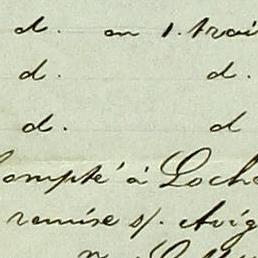 d. en 1. trai
d. d.
d. d
Compté à Loche
remise s/. Avig